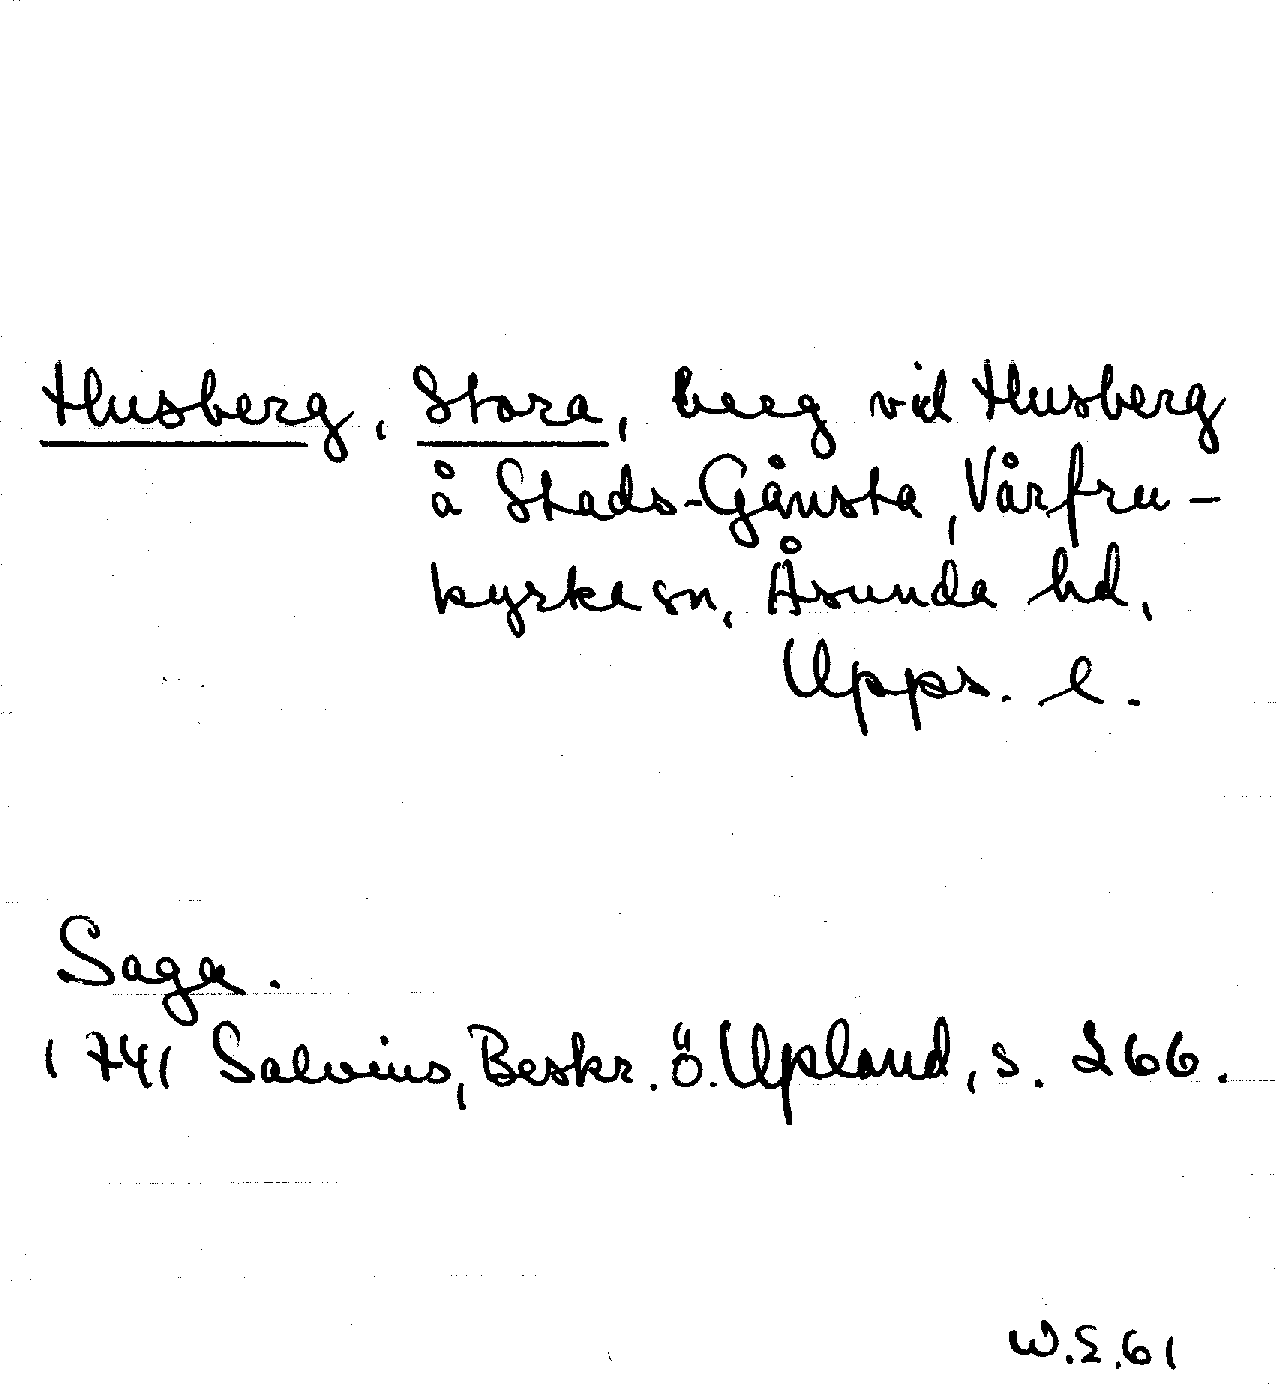 Husberg, Stora, berg vid Husberg
å Stads-Gånsta, Vårfru-
kyrka sn, Åsunda hd,
Upps. l.
Saga.
1741 Salvius, Beskr. ö. Upland, s. 266.
W.S.61